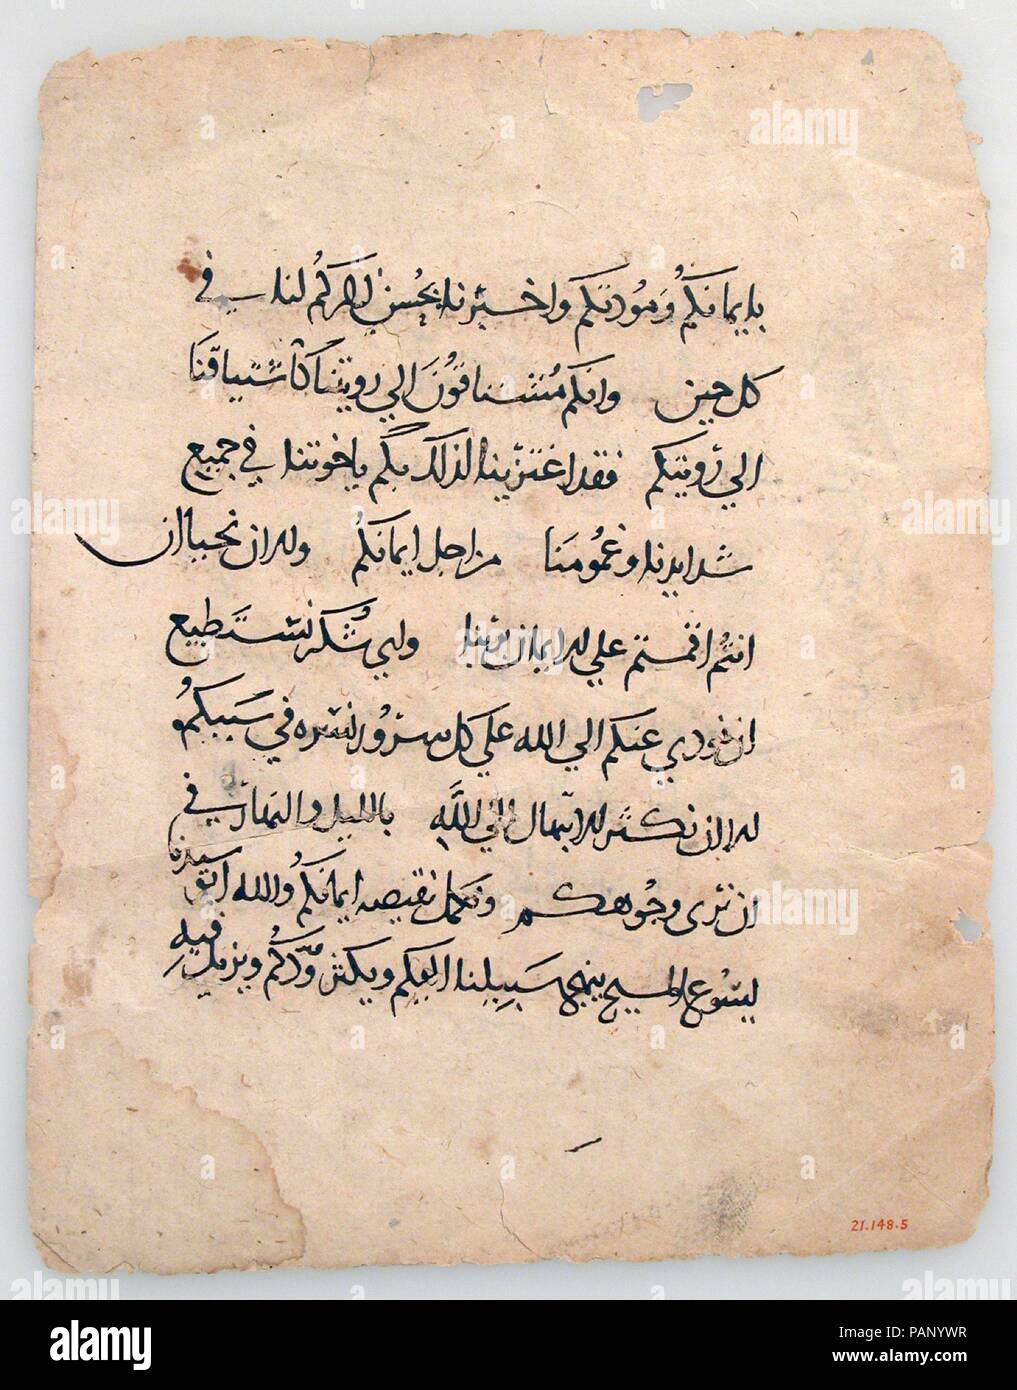 بايمانكم ومودتكم واخبرنا بحسن ذكركم لنا في
كل حين وانكم مشتاقون الي رويتنا كاشتياقنا
الي رويتكم فقد اعتزينا لذلك بكم ياخوتنا في جميع
شدايدنا وغمومنا من اجل ايمانكم والان نحيا ان
انتم اقمتم علي الايمان بربنا واي شكر نستطيع
ان نودي عنكم الي الله علي كل سرور نسره في سببكم
الا ان نكثر الابتهال الي الله بالليل والنهار في
ان نرى وجوهكم ونكمل نقيصه ايمانكم والله ابونا سيدنا
يسوع المسيح ينهج سبيلنا اليكم ويكثر ودكم ويزيد فيه
21.148.5
alamy
Image ID: PANYWR
www.alamy.com